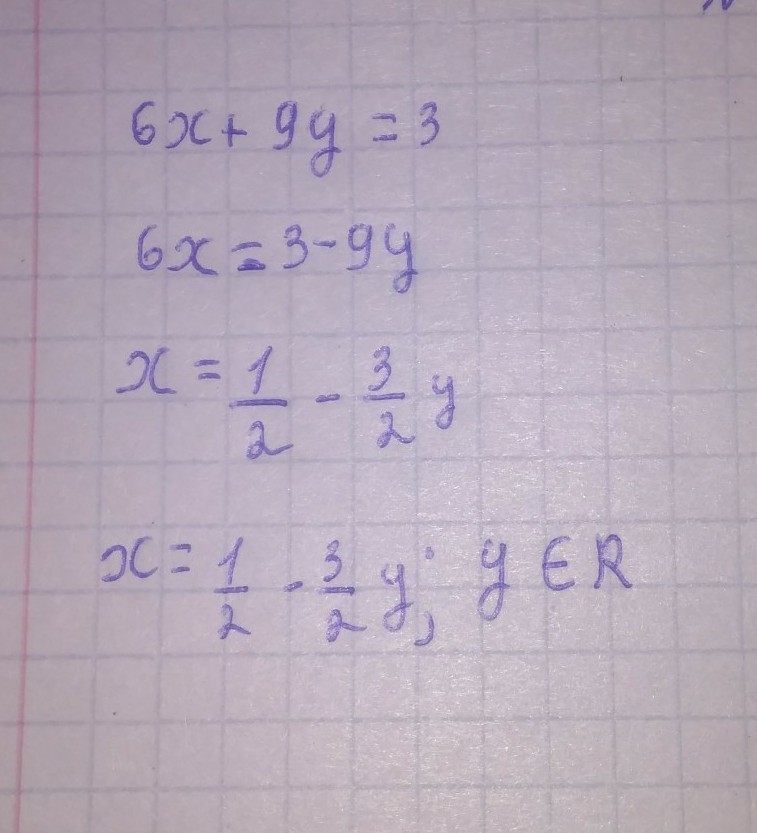 6x + 9y = 3
6x = 3 - 9y
x = 1/2 - 3/2 y
x = 1/2 - 3/2 y; y ∈ R